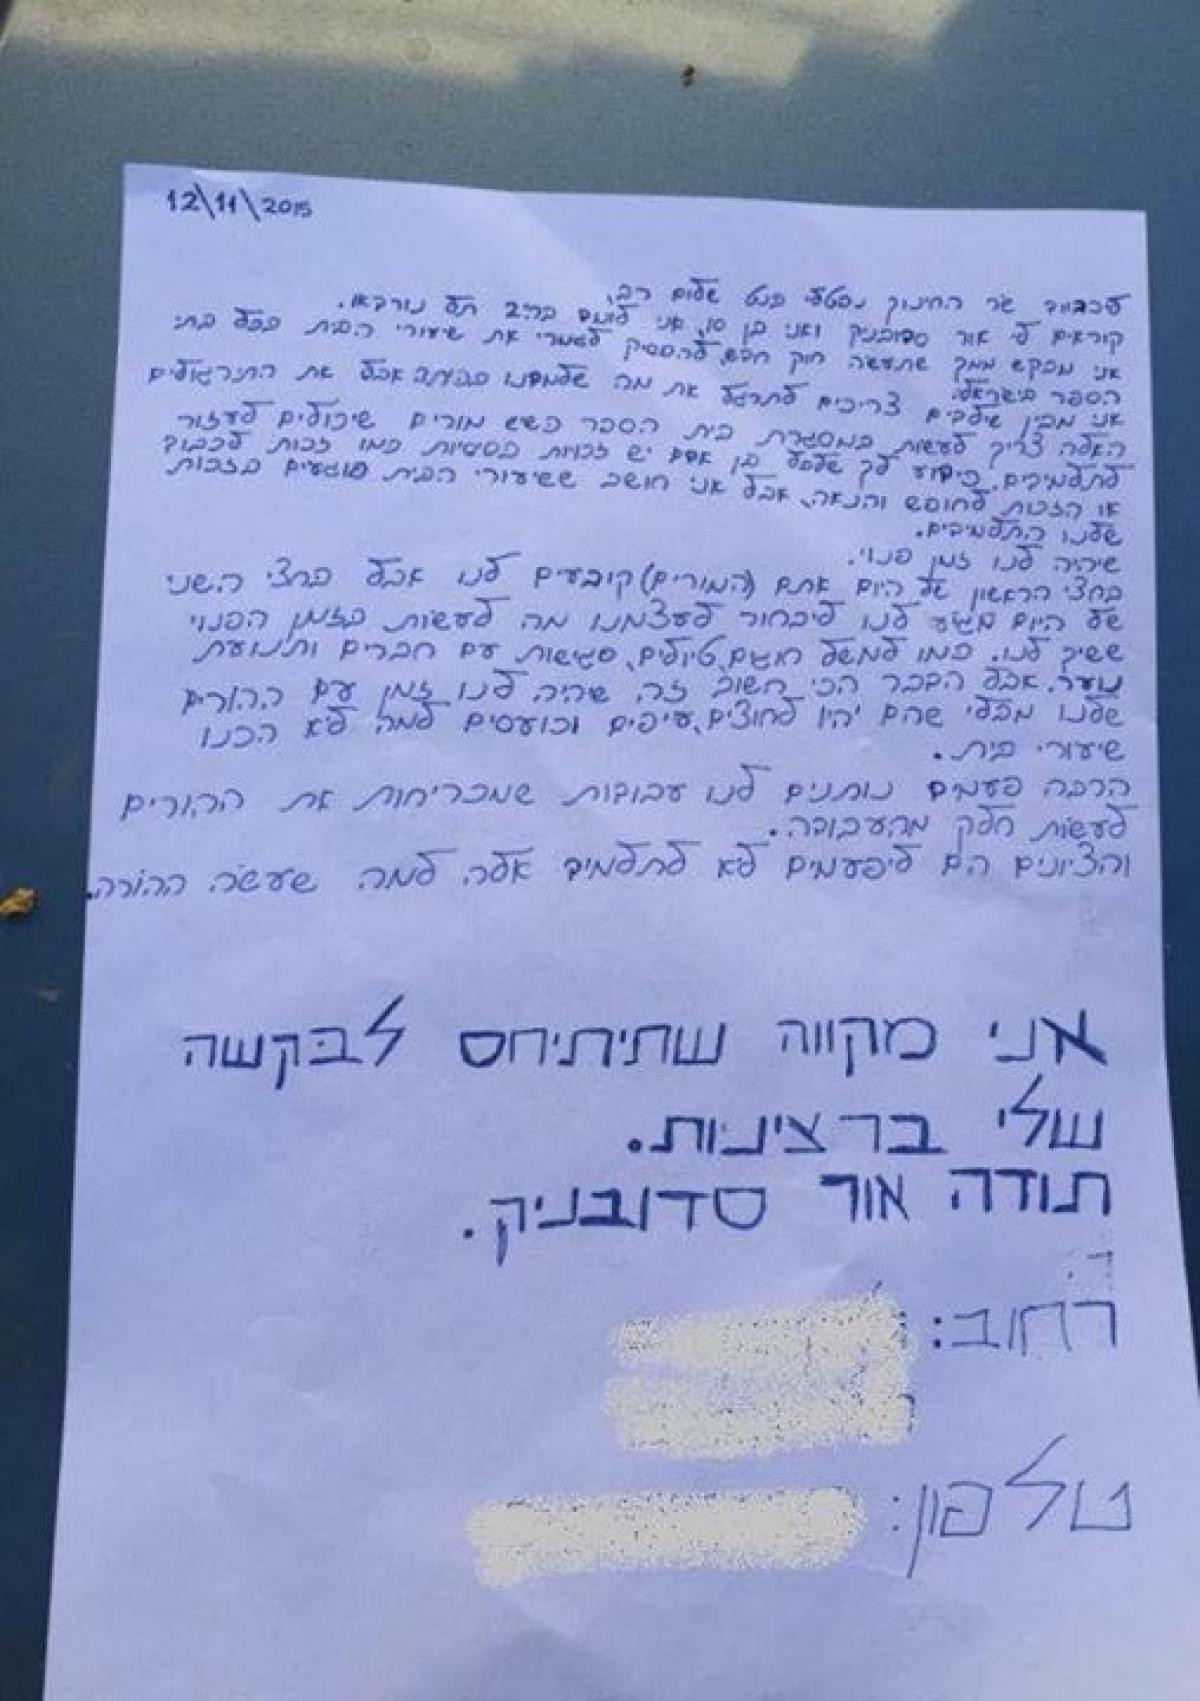 12\11\2015
לכבוד שר החינוך נפטלי בנט שלום רב,
קוראים לי אור סדובניק ואני בן 10, אני לומד בריב תל נורדאו.
אני מבקש ממך שתעשה חוק חדש, להפסיק לגמרי את שיעורי הבית בכל בתי
הספר בישראל.
אני מבין שילדים צריכים לתרגל את מה שלמדנו בכיתה אבל את התרגולים
האלה צריך לעשות במסגרת בית הספר כשיש מורים שיכולים לעזור
לתלמידים. כידוע לך שלכל בן אדם יש זכויות בסיסיות כמו זכות לכבוד
או הזכות לחופש והנאה, אבל אני חושב ששיעורי הבית פוגעים בזכות
שלנו התלמידים.
שיהיה לנו זמן פנוי.
בחצי הראשון של היום אתם (המורים) קובעים לנו אבל בחצי השני
של היום מגיע לנו ליבחור לעצמנו מה לעשות בזמן הפנוי
ששיך לנו. כמו למשל חוגים, טיולים, פגישות עם חברים ותנועת
נוער. אבל הדבר הכי חשוב זה שהיה לנו זמן עם ההורים
שלנו מבלי שהם יהיו לחוצים, עיפים וכועסים למה לא הכנו
שיעורי בית.
הרבה פעמים נותנים לנו עבודות שמכריחות את ההורים
לעשות חלק מהעבודה.
והציונים הם ליפעמים לא לתלמיד אלה למה שעשה ההורה.
אני מקווה שתיתיחס לבקשה
שלי ברצינות.
תודה אור סדובניק.
רחוב:
טלפון: